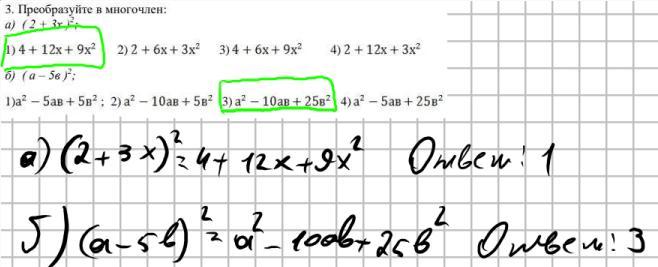 3. Преобразуйте в многочлен:
а) (2 + 3х)²;
1) 4 + 12х + 9х² 2) 2 + 6х + 3х² 3) 4 + 6х + 9х² 4) 2 + 12х + 3х²
б) (а – 5в)²;
1)а² − 5ав + 5в² ; 2) а² − 10ав + 5в² 3) а² − 10ав + 25в² 4) а² − 5ав + 25в²
а) (2 + 3х)² = 4 + 12х + 9х² Ответ: 1
б) (а – 5в)² = а² – 10ав + 25в² Ответ: 3